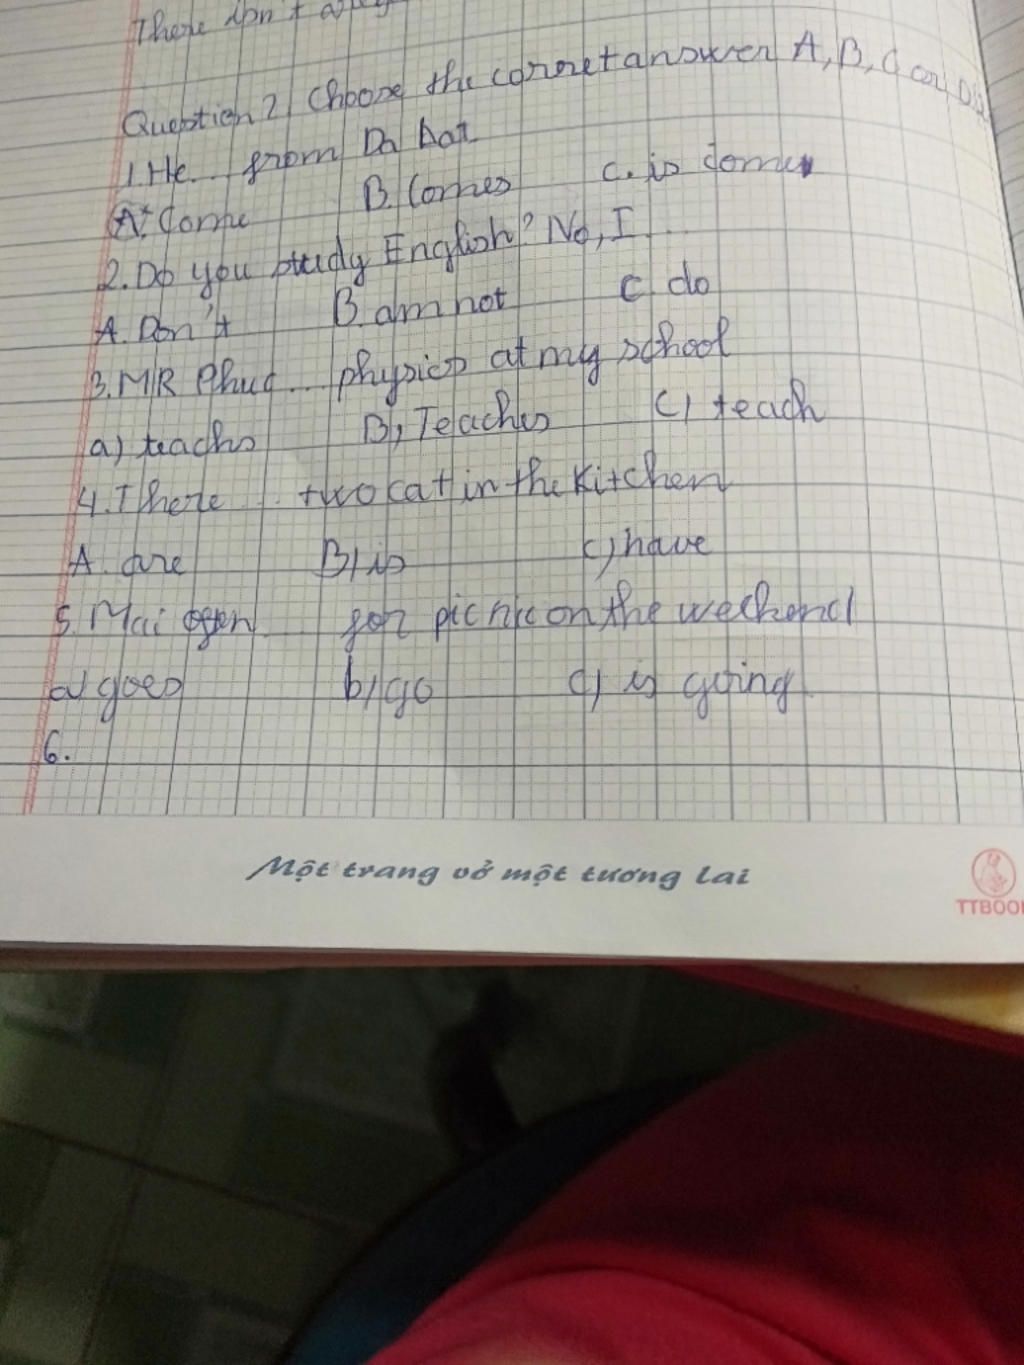 There isn't any
Question 2 Choose the correct answer A, B, C or D
1. He... from Da Lat
A. Come B. Comes C. is come
2. Do you study English? No, I....
A. Don't B. am not C do
3. MR Phuc... physics at my school
a) teachs B, Teaches C) teach
4. There... two cat in the kitchen
A. are B) is c) have
5. Mai ofen... for picnic on the weekend
a) goes b) go c) is going
6.
Một trang vở một tương lai
TTBOOK